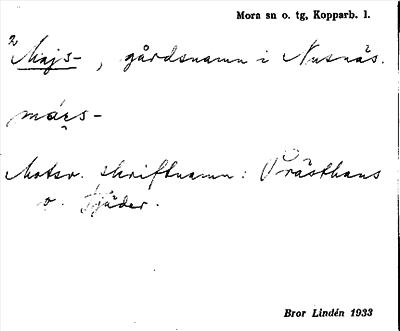 Mora sn o. tg, Kopparb. l.
2 Majs- , gårdsnamn i Nusnäs.
Motsv. skriftnamn: Prästhans
o. Fjäder.
Bror Lindén 1933